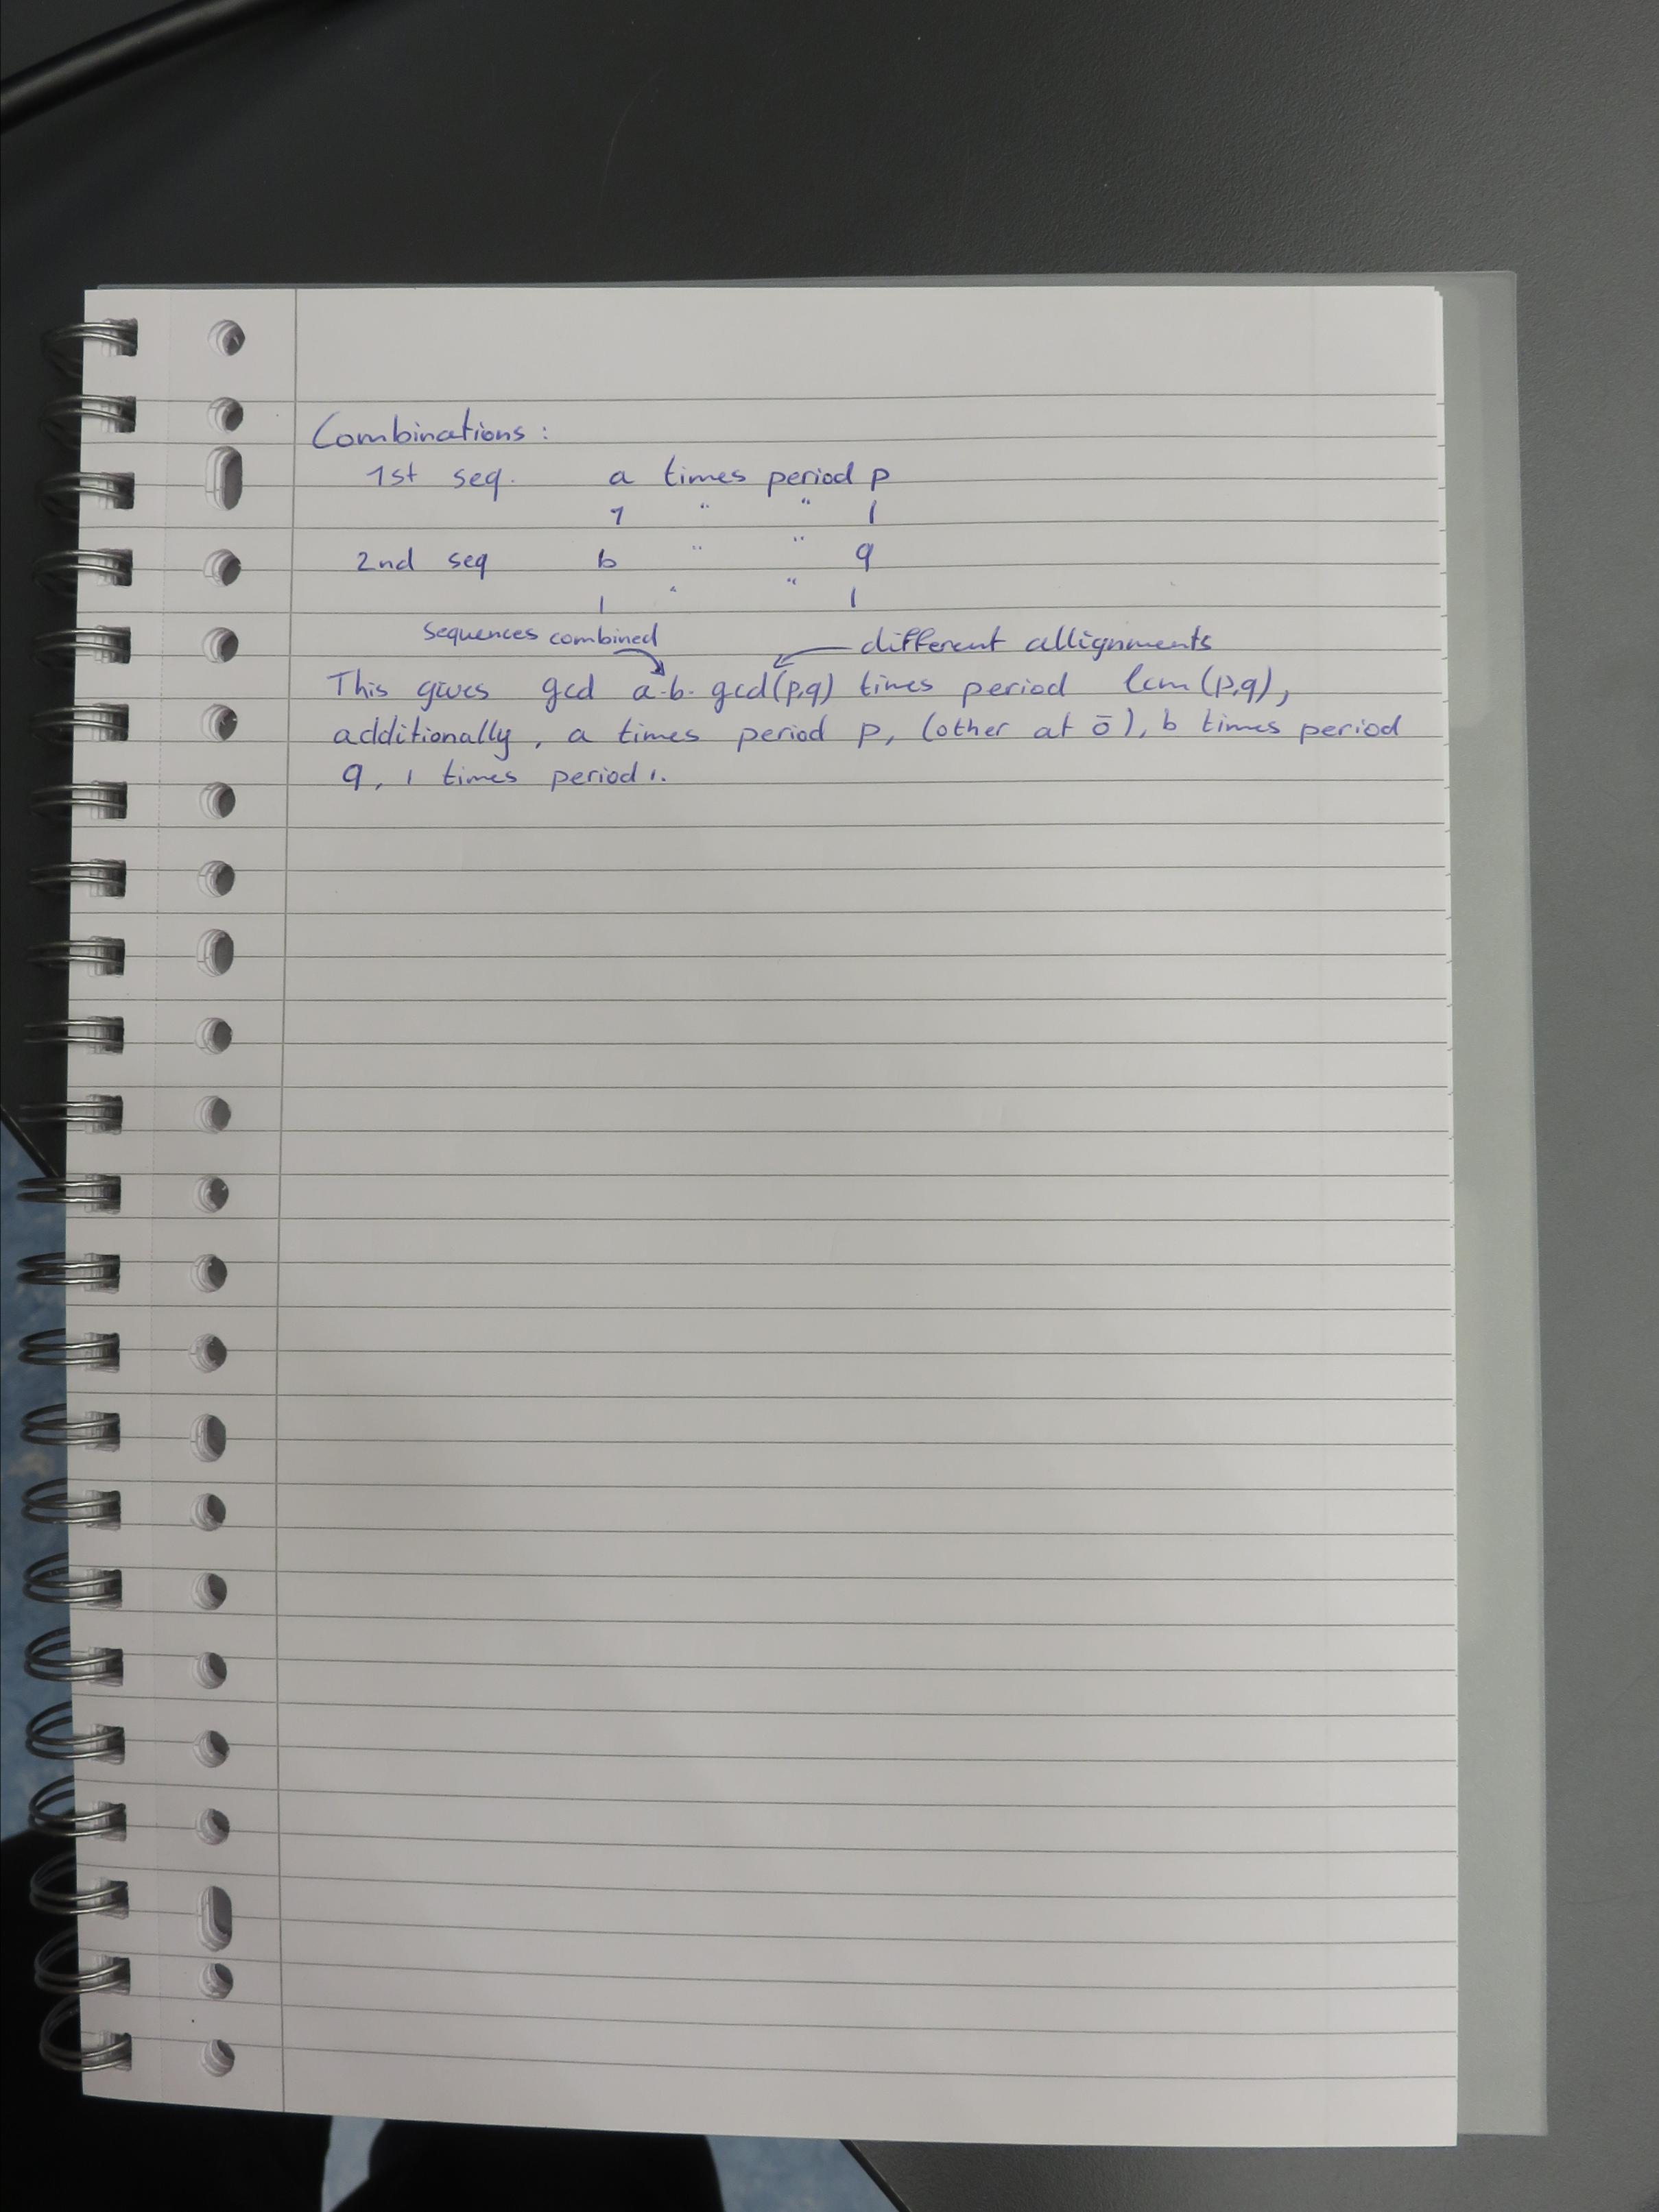 Combinations :
1st seq. a times period p
1 " " 1
2nd seq b " " q
1 " " 1
sequences combined different allignments
This gives gcd a·b· gcd(p,q) times period lcm(p,q),
additionally, a times period p, (other at ō), b times period
q, 1 times period 1.